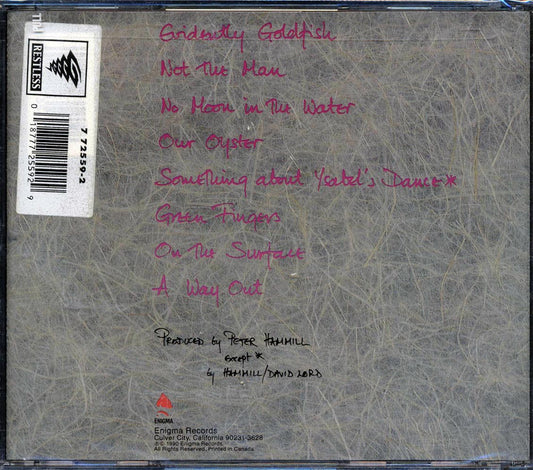 Evidently Goldfish
Not The Man
No Moon in The Water
Our Oyster
Something about Ysabel's Dance *
Green Fingers
On The Surface
A Way Out
PRODUCED by PETER HAMMILL
EXCEPT *
by HAMMILL/DAVID LORD
ENIGMA
Enigma Records
Culver City, California 90231-3628
℗ © 1990 Enigma Records
All Rights Reserved. Printed in Canada.
RESTLESS
7 72559-2
0 18777 25592 9